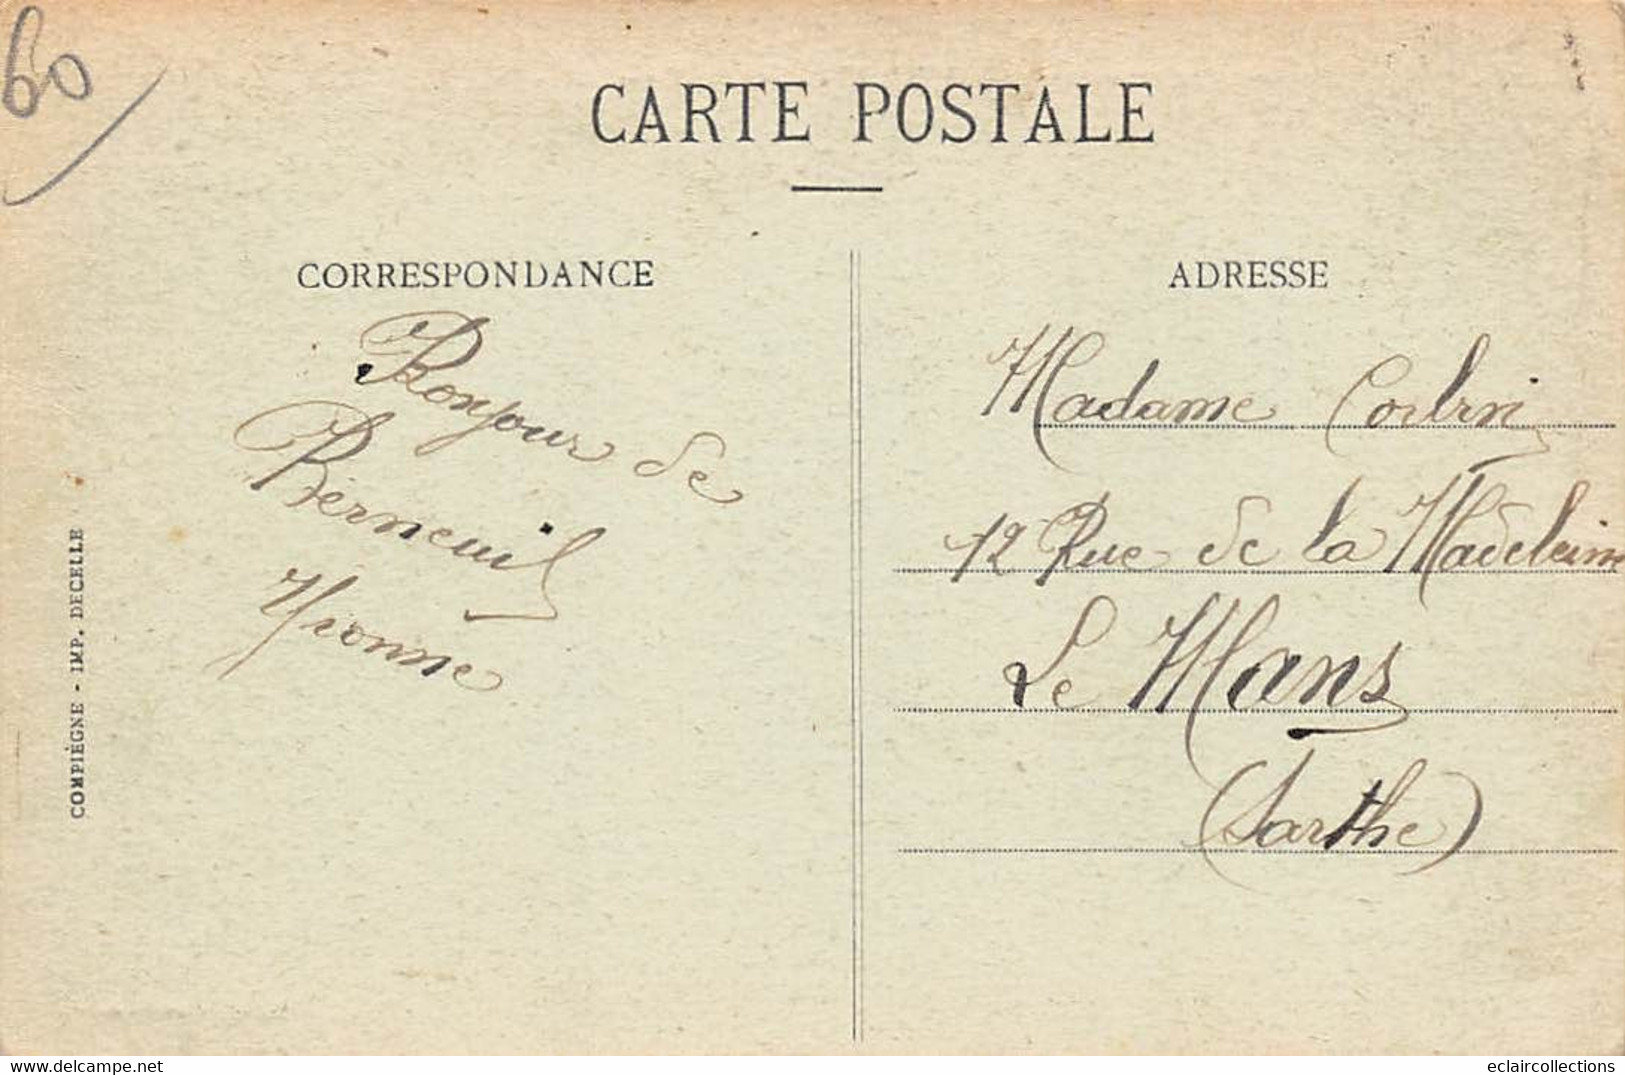 60
CARTE POSTALE
CORRESPONDANCE
Bonjour de
Berneuil
Yvonne
COMPIÈGNE - IMP. DECELLE
ADRESSE
Madame
12 Rue de la Madeleine
Le Mans
(Sarthe)
eclaircollections